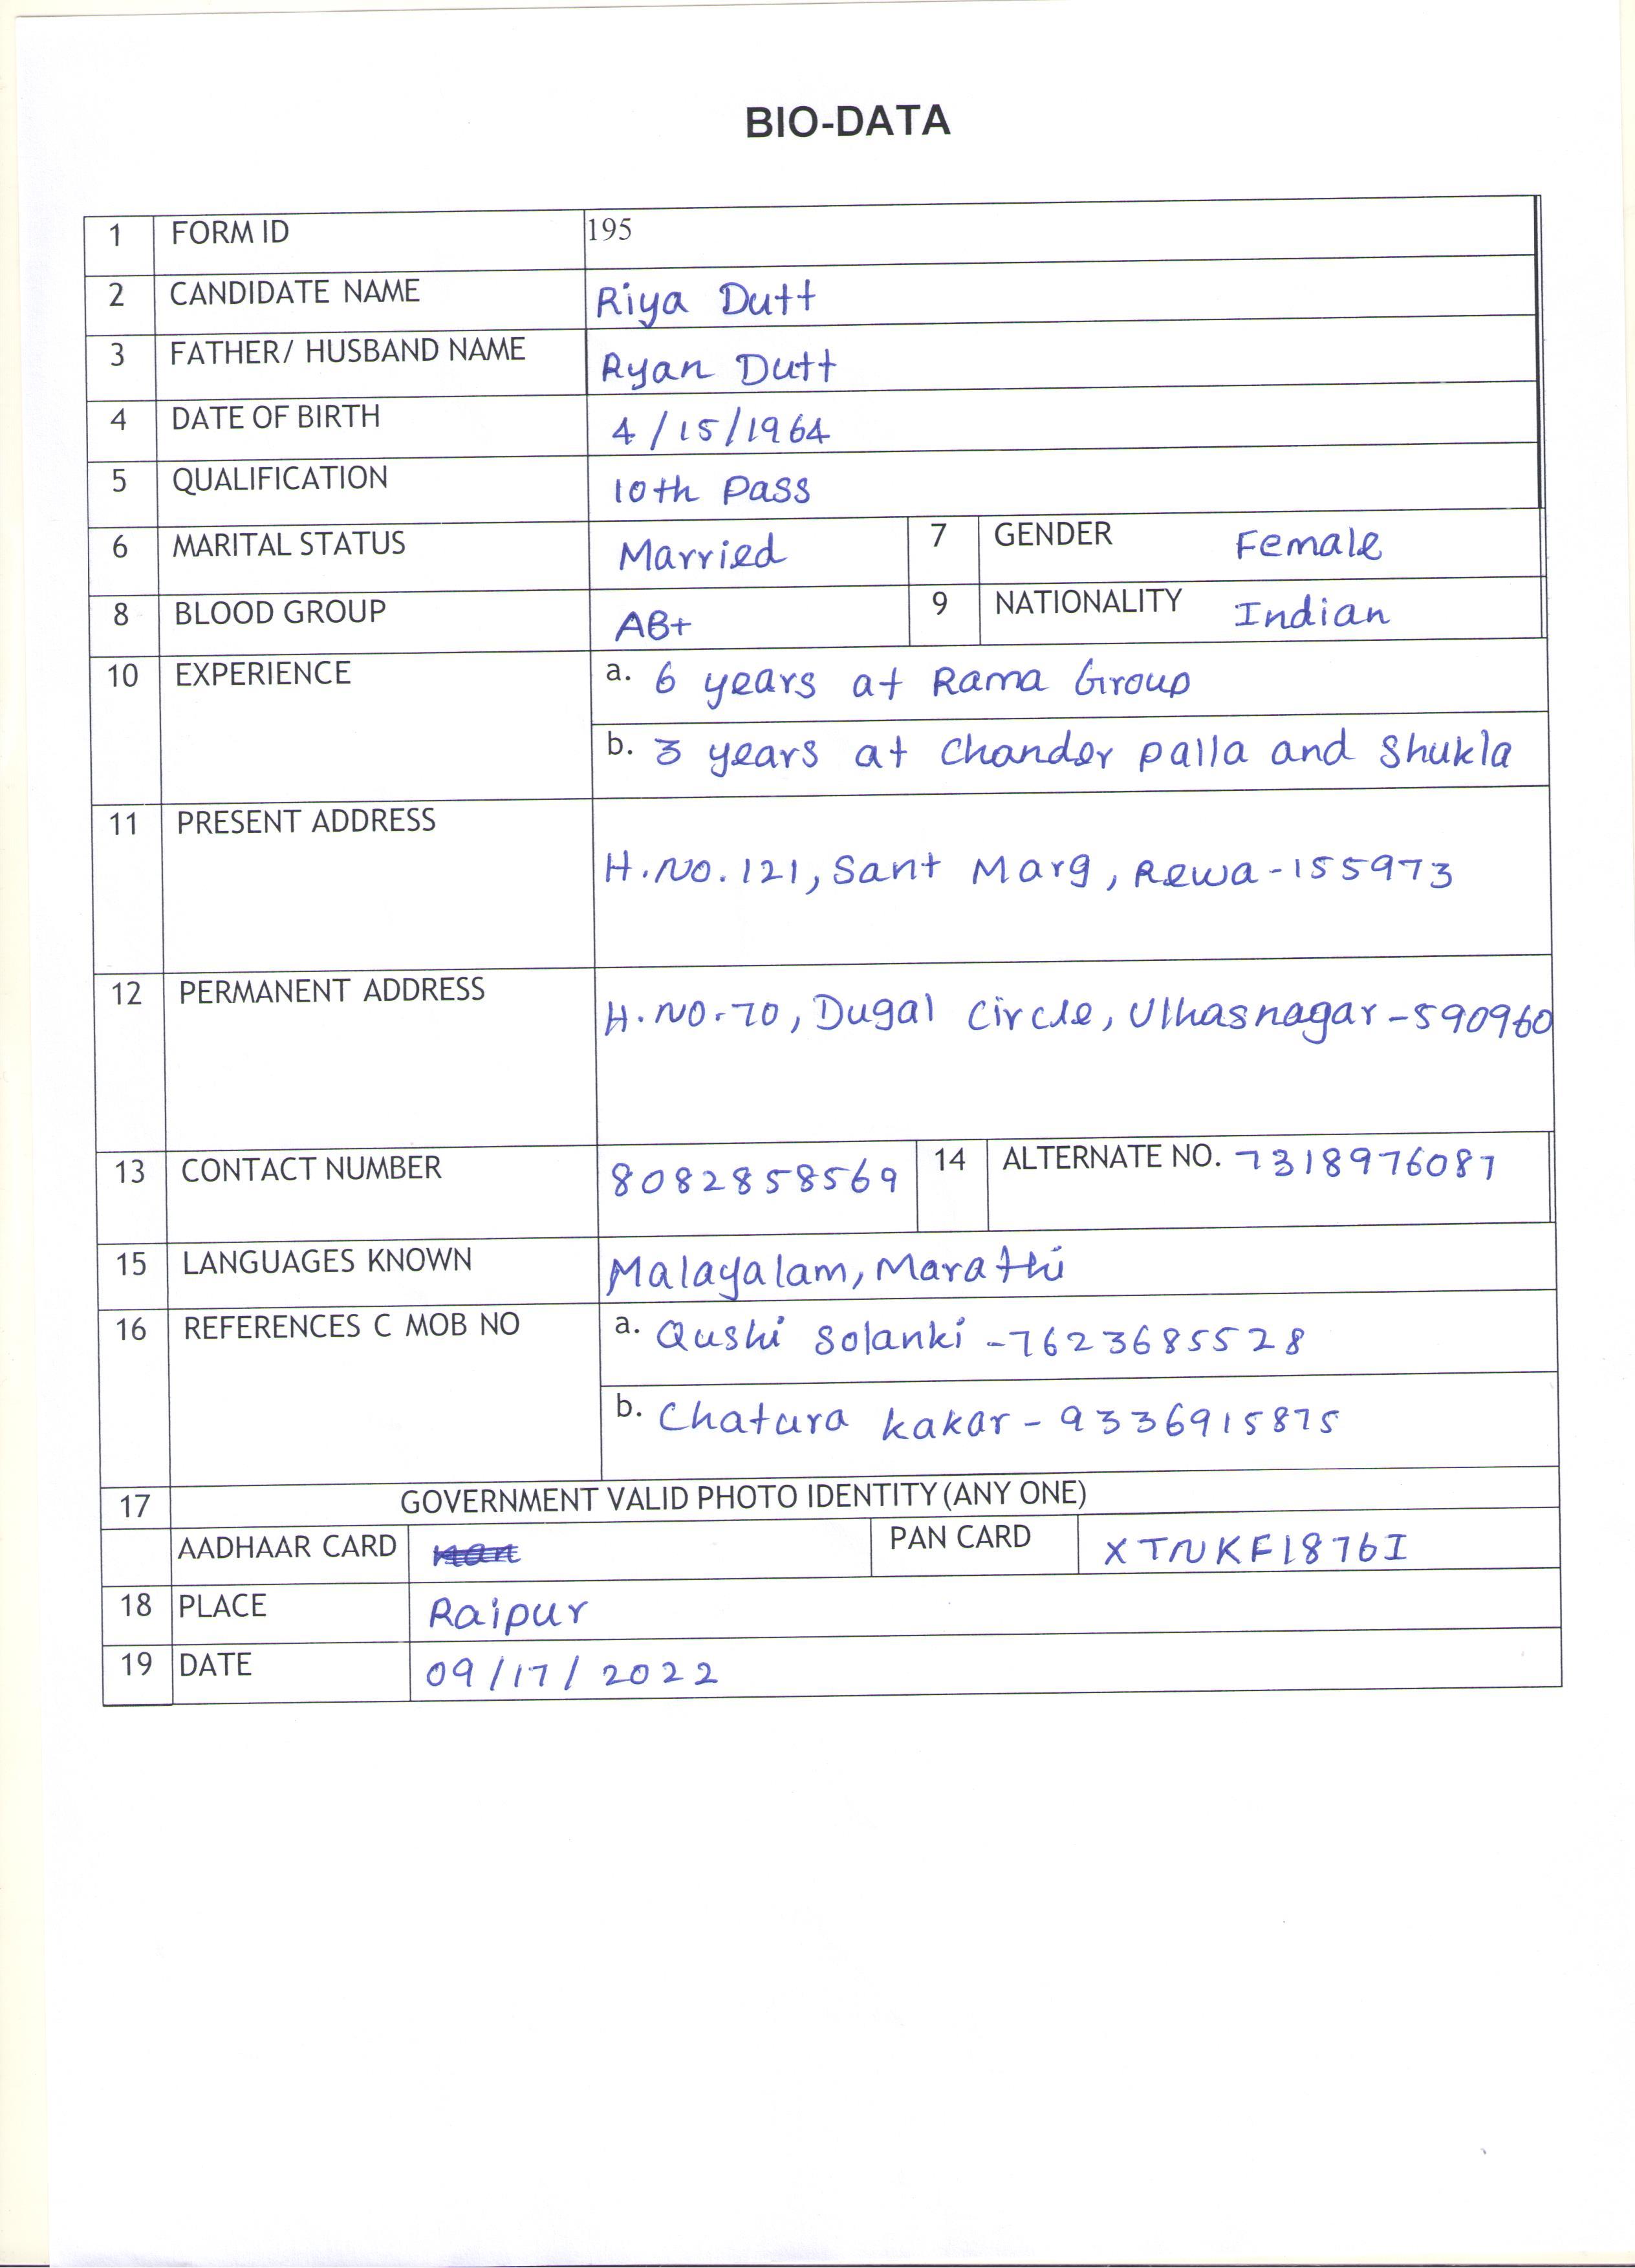 BIO-DATA
1 FORM ID 195
2 CANDIDATE NAME Riya Dutt
3 FATHER/ HUSBAND NAME Ryan Dutt
4 DATE OF BIRTH 4/15/1964
5 QUALIFICATION 10th Pass
6 MARITAL STATUS Married 7 GENDER Female
8 BLOOD GROUP AB+ 9 NATIONALITY Indian
10 EXPERIENCE a. 6 years at Rama Group
b. 3 years at Chander palla and Shukla
11 PRESENT ADDRESS
H.NO.121, Sant Marg, Rewa-155973
12 PERMANENT ADDRESS
H.NO.70, Dugal Circle, Ulhasnagar-590960
13 CONTACT NUMBER 8082858569 14 ALTERNATE NO. 7318976087
15 LANGUAGES KNOWN Malayalam, Marathi
16 REFERENCES C MOB NO a. Qushi Solanki -7623685528
b. Chatura kakar - 9336915875
17 GOVERNMENT VALID PHOTO IDENTITY (ANY ONE)
AADHAAR CARD PAN CARD XTNKF1876I
18 PLACE Raipur
19 DATE 09/17/2022